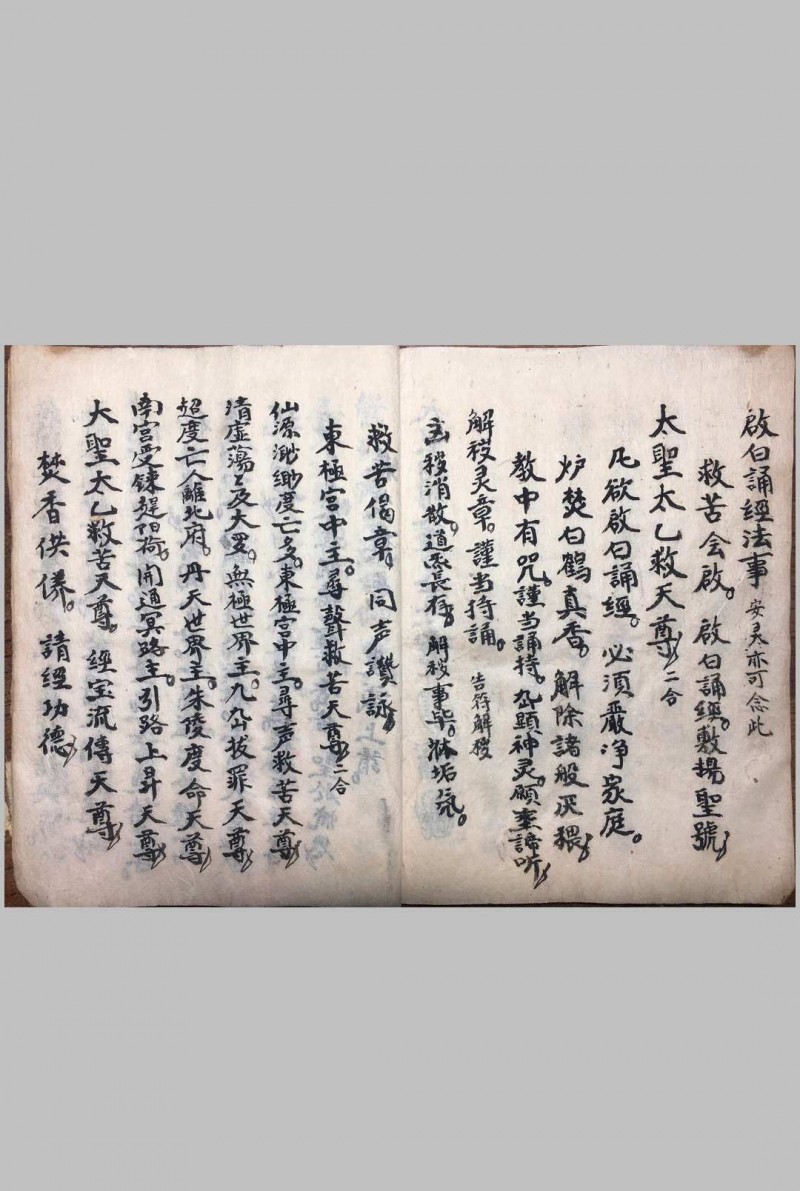 啟白誦經法事 安灵亦可念此
救苦会啟。啟白誦經。敷揚聖號
太聖太乙救天尊 二合
凡欲啟白誦經。必須嚴净家庭。
炉焚白鶴真香。解除諸般灰猥
教中有咒。謹当誦持。仰顕神灵。願垂諦听
解穢灵章。謹当持誦。 告符解穢
玄穢消散。道炁長存 解穢事毕。淋垢氛。
救苦偈章 同声讚詠
東極宮中主。尋聲救苦天尊 二合
仙源渺緲度亡多。東極宮中主。尋声救苦天尊
清虚蕩々及大罗。無極世界主。九幽拔罪天尊
超度亡人離北府。丹天世界主。朱陵度命天尊
南宮受錬捉阳荷。開通冥路主。引路上昇天尊
大聖太乙救苦天尊。經宝流傳天尊
焚香供养。請經功德